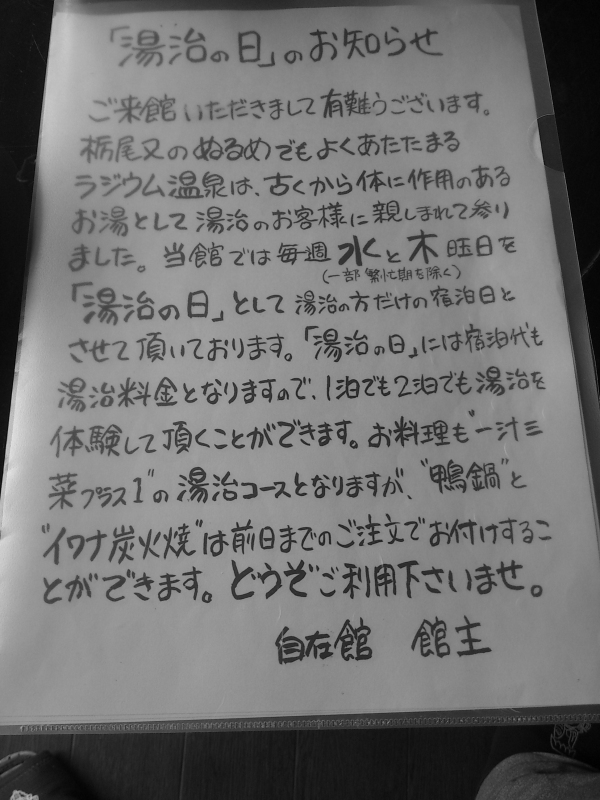 「湯治の日」のお知らせ
ご来館いただきまして有難うございます。
栃尾又のぬるめでもよくあたたまる
ラジウム温泉は、古くから体に作用のある
お湯として湯治のお客様に親しまれて参り
ました。当館では毎週水と木曜日を
(一部繁忙期を除く)
「湯治の日」として湯治の方だけの宿泊日と
させて頂いております。「湯治の日」には宿泊代も
湯治料金となりますので、1泊でも2泊でも湯治を
体験して頂くことができます。お料理も"一汁三
菜プラス1"の湯治コースとなりますが、"鴨鍋"と
"イワナ炭火焼"は前日までのご注文でお付けするこ
とができます。どうぞご利用下さいませ。
自在館 館主